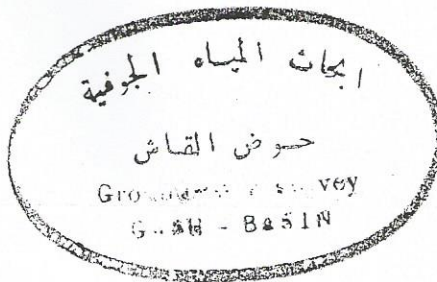 ابحاث المياه الجوفية
حوض القاش
Groundwater survey
GASH - BASIN